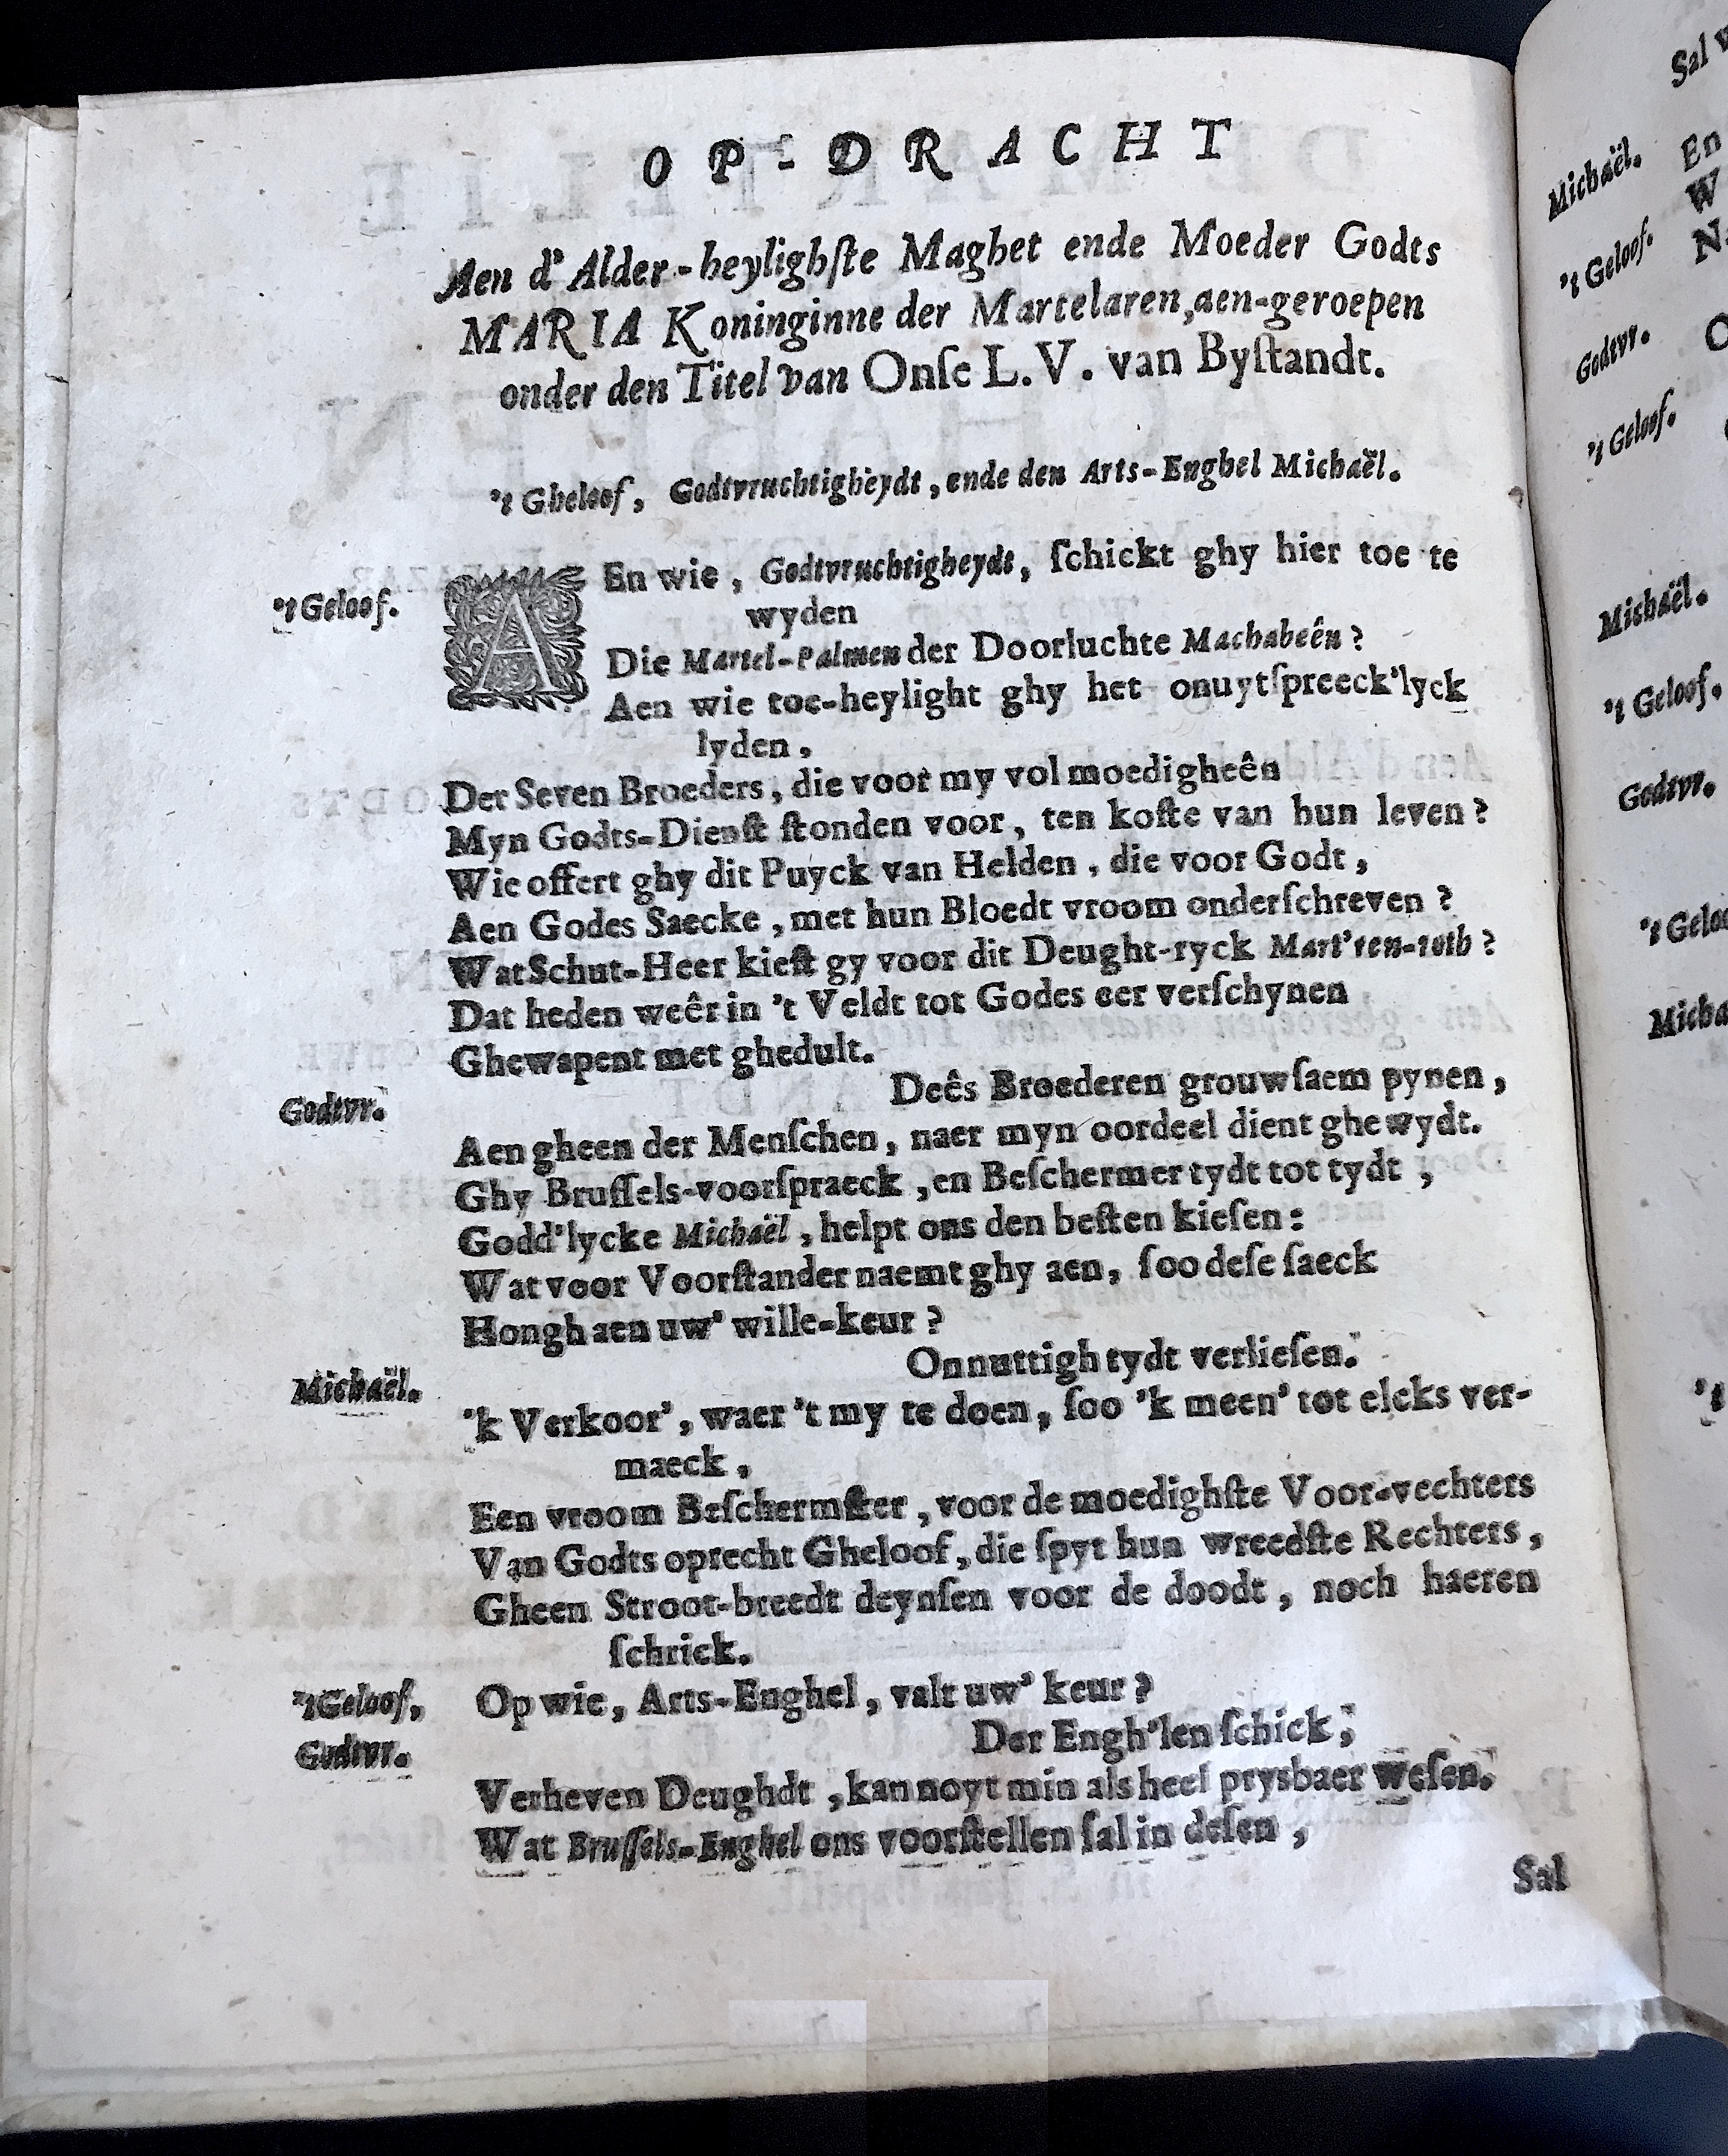 OP-DRACHT
Aen d'Alder-heylighſte Maghet ende Moeder Godts
MARIA Koninginne der Martelaren, aen-geroepen
onder den Titel van Onſe L. V. van Byſtandt.
't Gheloof, Godtvruchtigheydt, ende den Arts-Enghel Michaël.
't Geloof. AEn wie, Godtvruchtigheydt, ſchickt ghy hier toe te
wyden
Die Martel-Palmen der Doorluchte Machabeên?
Aen wie toe-heylight ghy het onuytſpreeck'lyck
lyden,
Der Seven Broeders, die voor my vol moedigheên
Myn Godts-Dienſt ſtonden voor, ten koſte van hun leven?
Wie offert ghy dit Puyck van Helden, die voor Godt,
Aen Godes Saecke, met hun Bloedt vroom onderſchreven?
Wat Schut-Heer kieſt gy voor dit Deught-ryck Mart'ren-roth?
Dat heden weêr in 't Veldt tot Godes eer verſchynen
Ghewapent met ghedult.
Godtvr. Deês Broederen grouwſaem pynen,
Aen gheen der Menſchen, naer myn oordeel dient ghewydt.
Ghy Bruſſels-voorſpraeck, en Beſchermer tydt tot tydt,
Godd'lycke Michaël, helpt ons den beſten kieſen:
Wat voor Voorſtander naemt ghy aen, ſoo deſe ſaeck
Hongh aen uw' wille-keur?
Michaël. Onnuttigh tydt verlieſen.
'k Verkoor', waer 't my te doen, ſoo 'k meen' tot elcks ver-
maeck,
Een vroom Beſchermſter, voor de moedighſte Voor-vechters
Van Godts oprecht Gheloof, die ſpyt hun wreedſte Rechters,
Gheen Stroot-breedt deynſen voor de doodt, noch haeren
ſchrick.
't Geloof, Op wie, Arts-Enghel, valt uw' keur?
Godtvr. Der Engh'len ſchick,
Verheven Deughdt, kan noyt min als heel prysbaer weſen.
Wat Bruſſels-Enghel ons voorſtellen ſal in deſen,
Sal
Sal
Michaël. En
W
't Geloof.
Godtvr.
't Geloof.
Michaël.
't Geloof.
Godtvr.
't Geloo
Micha
't